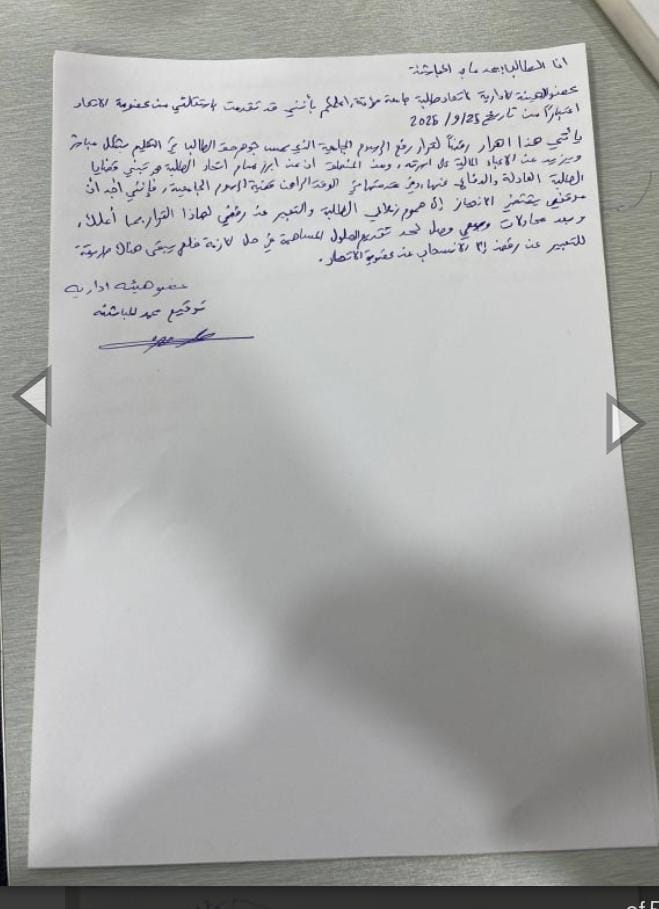 انا الطالب محمد ماجد الحباشنة
عضو الهيئة الادارية لاتحاد طلبة جامعة مؤتة، اعلمكم بأنني قد تقدمت باستقالتي من عضوية الاتحاد
اعتبارًا من تاريخ 2025/9/25
يأتي هذا القرار رفضًا لقرار رفع الرسوم الجامعية الذي يمس جوهر حق الطالب في التعليم بشكل مباشر
ويزيد من الاعباء المالية على اسرته، ومن المنطلق ان من ابرز مهام اتحاد الطلبة هو تبني قضايا
الطلبة العادلة والدفاع عنها، وفي مقدمتها في الوقت الراهن قضية الرسوم الجامعية، فإنني اجد ان
موقفي يقتضي الانحياز إلى هموم زملائي الطلبة والتعبير عن رفضي لهذا القرار بما أملك،
وبعد محاولات وسعي وصل لحد تقديم الحلول للمساهمة في حل الازمة فلم يبقى هناك طريقة
للتعبير عن رفضي إلا الانسحاب من عضوية الاتحاد.
عضو هيئة ادارية
توقيع محمد الحباشنه
of 5